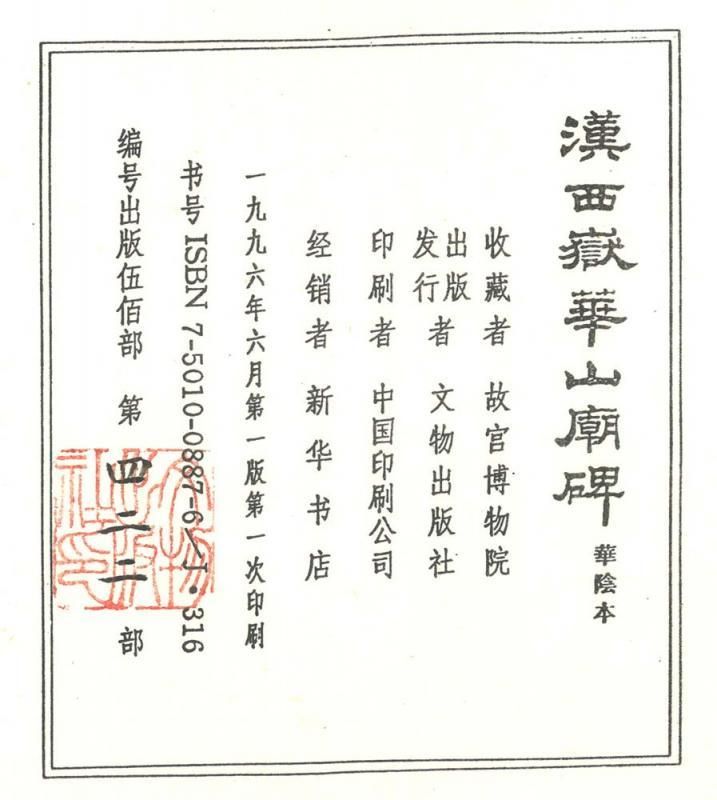 漢西嶽華山廟碑 華陰本
收藏者 故宫博物院
出版发行者 文物出版社
印刷者 中国印刷公司
经销者 新华书店
一九九六年六月第一版第一次印刷
书号 ISBN 7-5010-0887-6/J·316
编号出版伍佰部 第四二二部